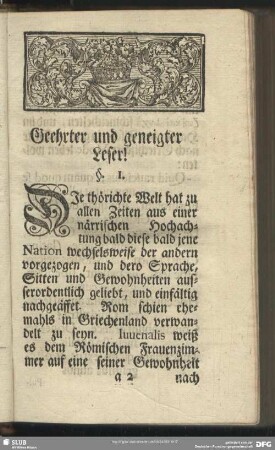 Geehrter und geneigter
Leser!
§. 1.
Die thörichte Welt hat zu
allen Zeiten aus einer
närrischen Hochach-
tung bald diese bald jene
Nation wechselsweise der andern
vorgezogen, und dero Sprache,
Sitten und Gewohnheiten auf-
serordentlich geliebt, und einfältig
nachgeäffet. Rom schien ehe-
mahls in Griechenland verwan-
delt zu seyn. Iuuenalis weiß
es dem Römischen Frauenzim-
mer auf eine seiner Gewohnheit
a 2 nach
SLUB